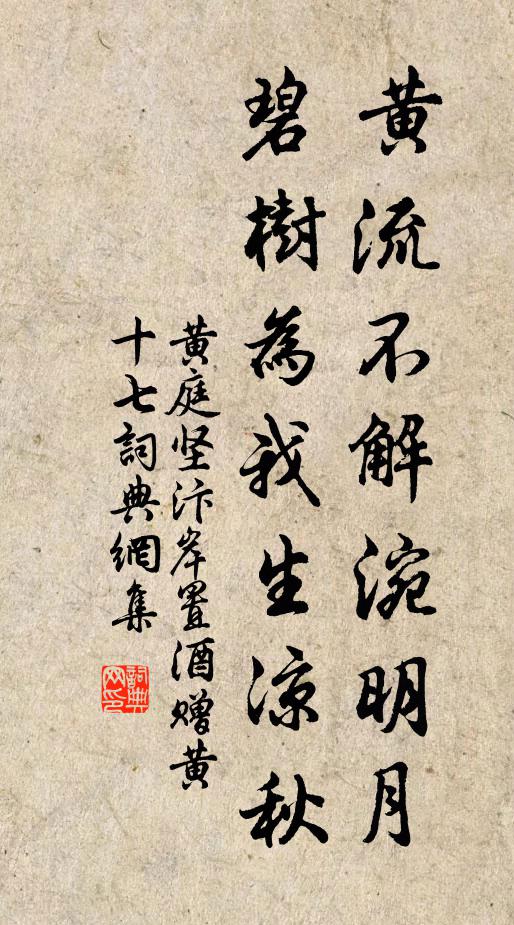 黄流不解涴明月
碧樹為我生涼秋
黄庭坚汴岸置酒赠黄
十七詞典網集
詞典
网印